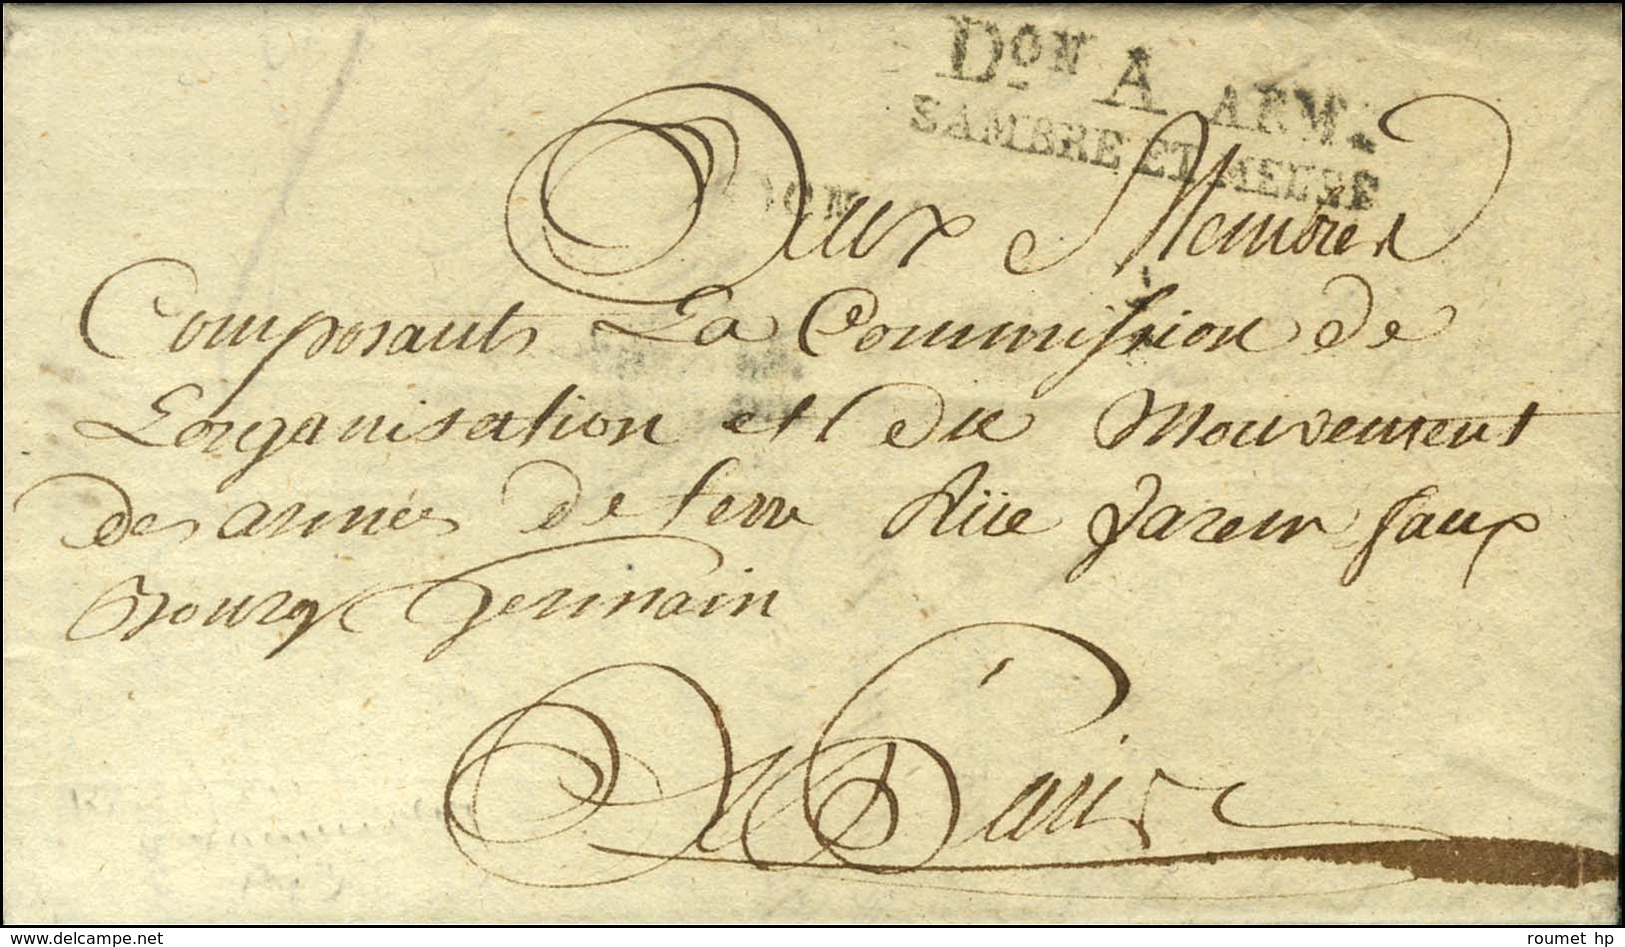 Don A ARM.
SAMBRE ET MEUSE
Aux Membres
Composant La Commission de
Lorganisation et du Mouvement
des armées de terre Rüe Varenn faux
Bourg Germain
A Paris
roumet hp